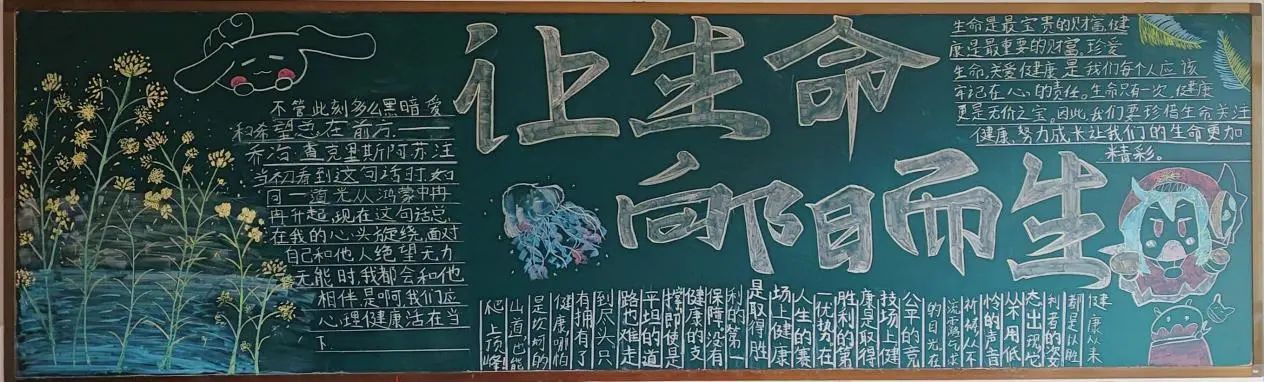 让生命
向阳而生
不管此刻多么黑暗爱
和希望总在前方.——
乔治·查克里斯阿苏汪
当初看到这句话时如
同一道光从鸿蒙中冉
冉升起,现在这句话总
在我的心头旋绕,面对
自己和他人绝望无力
无能时,我都会和他
相伴是啊我们应
心理健康活在当
下.
生命是最宝贵的财富,健
康是最重要的财富,珍爱
生命,关爱健康是我们每个人应该
牢记在心的责任。生命只有一次,健康
更是无价之宝。因此,我们要珍惜生命关注
健康,努力成长让我们的生命更加
精彩。
健康从来
都是以胜
利者的姿
态出现它
从不用低
怜的声音
祈候从不
流露乞求
的目光在
公平的竞
技场上健
康是取得
胜利的第
一优势在
人生的赛
场上健康
是取得胜
利的第一
保障没有
健康的支
撑即使是
平坦的道
路也难走
到尽头只
有拥有了
健康哪怕
是坎坷的
山道也能
爬上顶峰